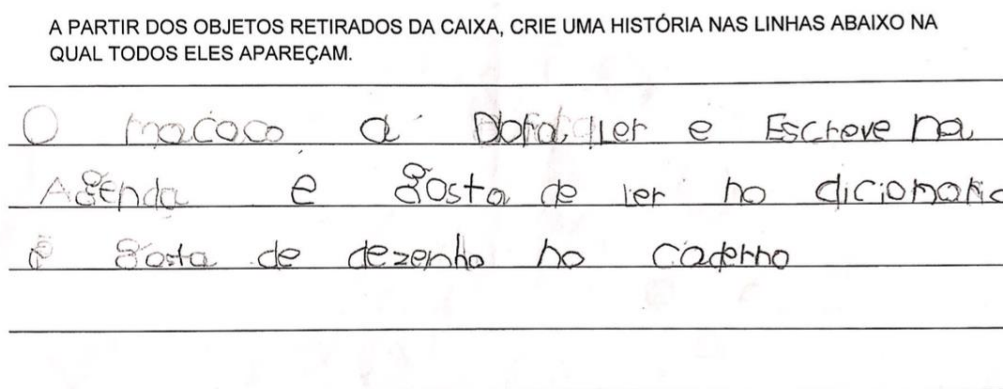 A PARTIR DOS OBJETOS RETIRADOS DA CAIXA, CRIE UMA HISTÓRIA NAS LINHAS ABAIXO NA
QUAL TODOS ELES APAREÇAM.
O macaco a ler e Escreve na
Agenda e gosta de ler no dicionario
e gosta de dezenho no caderno